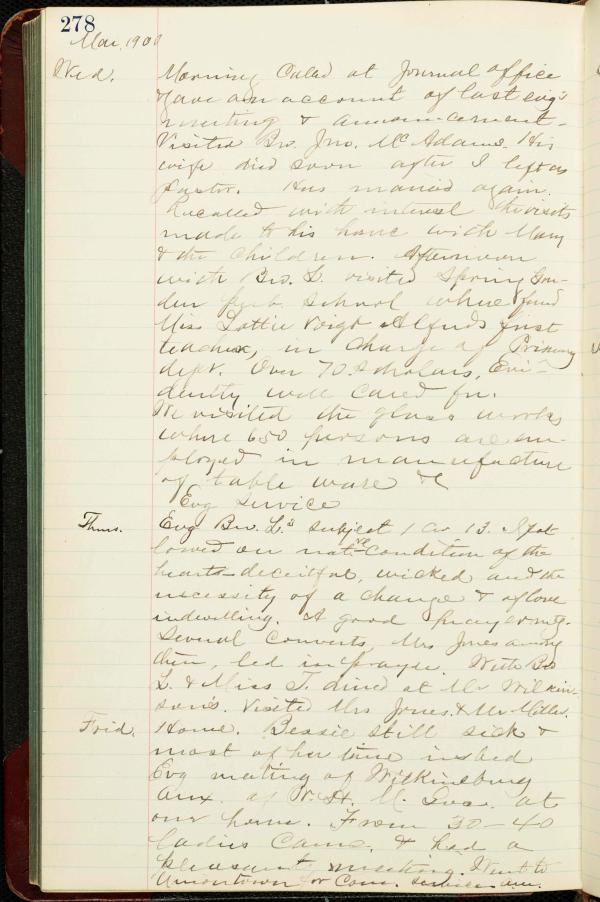 278
Mar. 1900
Wed. Morning Caled at Journal office
& gave an account of last evg's
meeting & announcement-
Visited Bro. Jno. McAdams. His
wife died soon after I left as
pastor. Has maried again.
Recalled with interest the visits
made to his home with Mary
& the Children. Afternoon
with Bro. L. visited Spring Gar-
den pub. School where found
Miss Lottie Voigt Alfred's first
teacher, in charge of Primary
dept. Over 70 Scholars, Evi-
dently well cared for.
We visited the glass works
where 650 persons are em-
ployed in manufacture
of table ware &c
Evg Service
Thurs. Evg Bro. L.'s subject 1 Cor 13. I fol
lowed on nat condition of the
hearts deceitful, wicked and the
necessity of a change & of love
indwelling. A good prayer mtg.
Several Converts, Mrs Jones among
them, led in prayer. With Bro
L. & Miss T. dined at Mr Wilkin-
sons. Visited Mrs Jones. & Mr Miller.
Frid. Home. Bessie still sick &
most of her time in bed
Evg meeting of Wilkinsburg
Aux. of W. H. M. Soc. at
our home. From 30-40
ladies Came, & had a
pleasant meeting. Went to
Uniontown for Com. service